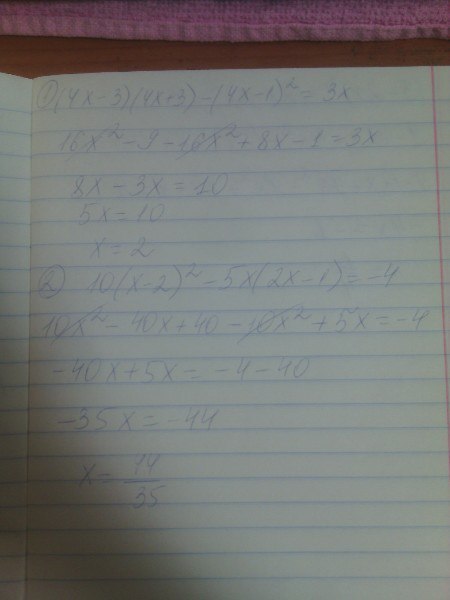 ① (4x-3)(4x+3)-(4x-1)²=3x
16x²-9-16x²+8x-1=3x
8x-3x=10
5x=10
x=2
② 10(x-2)²-5x(2x-1)=-4
10x²-40x+40-10x²+5x=-4
-40x+5x=-4-40
-35x=-44
x=44/35